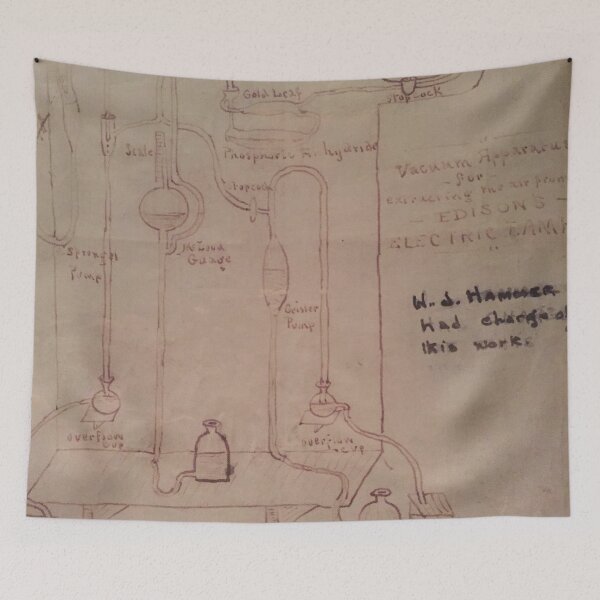 Gold Leaf
Stopcock
Scale
Phosphoric Anhydride
Stopcock
Vacuum Apparatu
for
extracting the air from
— EDISON'S —
ELECTRIC LAMP
Sprengel
Pump
McLoud
Gauge
Geisler
Pump
W. J. HAMMER
Had charge of
this work.
Overflow
cup
Overflow
cup